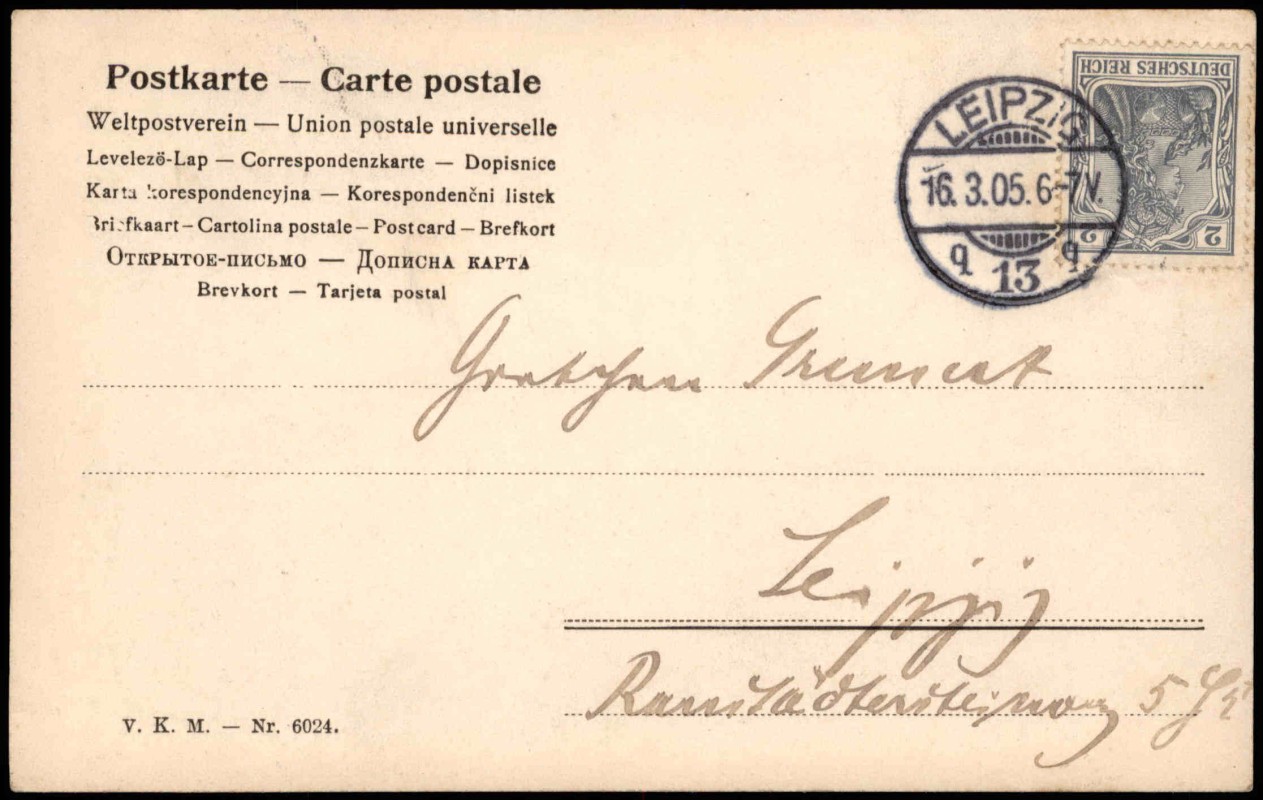 Postkarte — Carte postale
Weltpostverein — Union postale universelle
Levelezö-Lap — Correspondenzkarte — Dopisnice
Karta korespondencyjna — Korespondenčni listek
Briefkaart – Cartolina postale – Post card – Brefkort
Открытое-письмо — Дописна карта
Brevkort — Tarjeta postal
DEUTSCHES REICH
2 2
LEIPZIG
16. 3. 05. 6-7V.
q 13 q
Gretchen
Leipzig
Ranstädtersteinweg 5
V. K. M. — Nr. 6024.